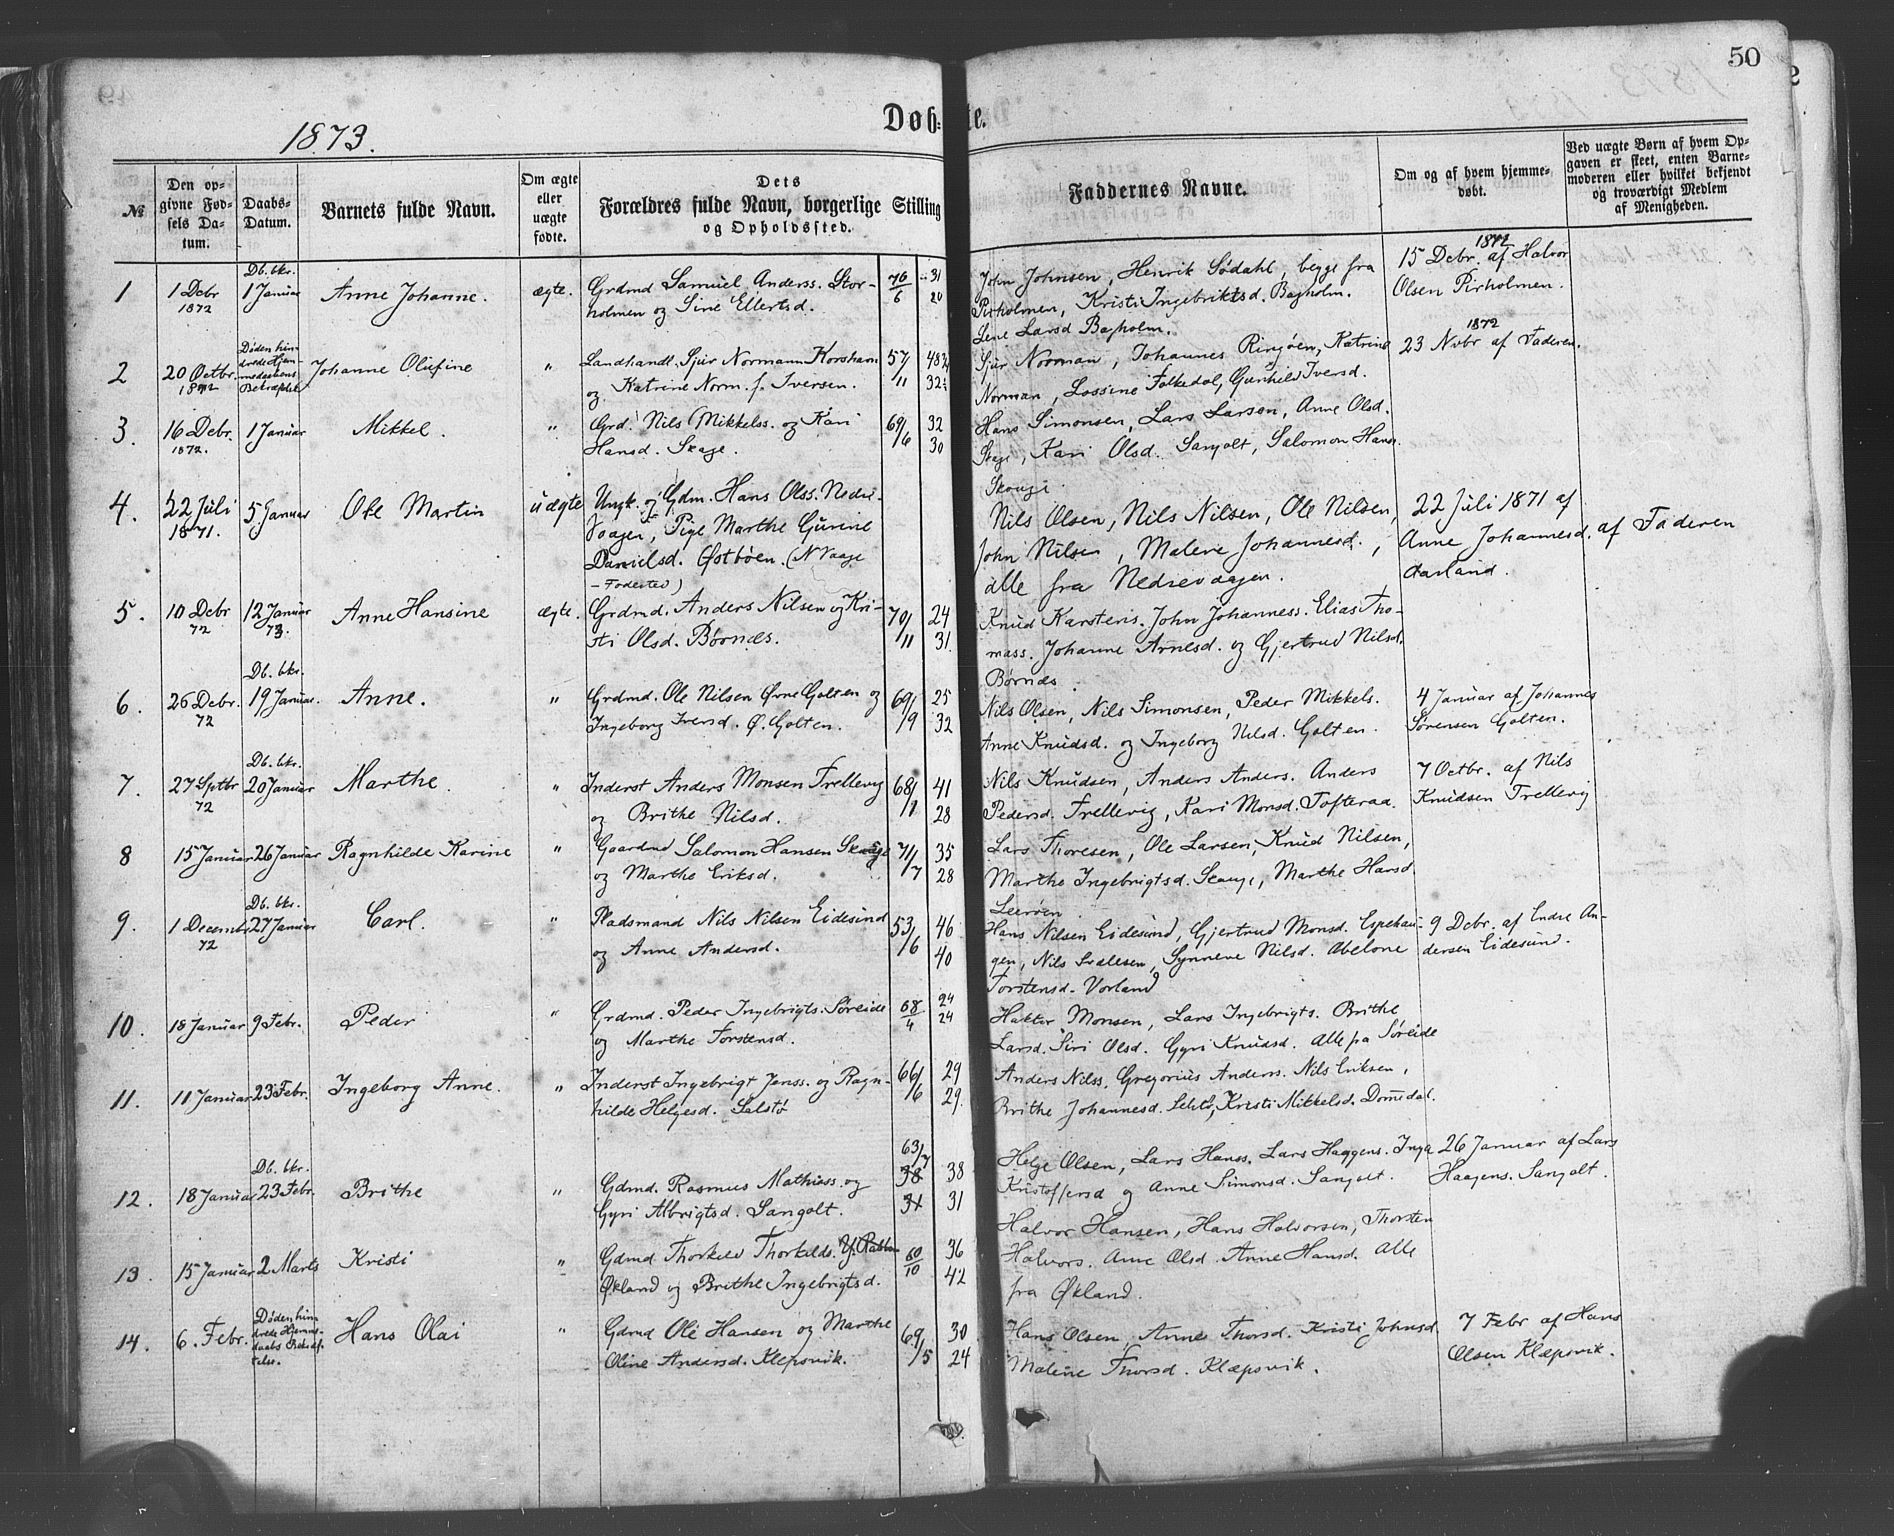 50
1873.
Døb: te.
№
Den op-
givne Fød-
sels Da-
tum.
Daabs-
Datum.
Barnets fulde Navn.
Om ægte
eller
uægte
fødte.
Dets
Forældres fulde Navn, borgerlige Stilling
og Opholdssted.
Faddernes Navne.
Om og af hvem hjemme-
døbt.
Ved uægte Børn af hvem Op-
gaven er skeet, enten Barne-
moderen eller hvilket bekjendt
og troværdigt Medlem
af Menigheden.
1
1 Debr
1872
Db. bkr.
1 Januar
Anne Johanne.
ægte.
Grdmd Samuel Anderss. Stor-
holmen og Sine Ellertsd.
76/6
31
20
John Johnsen, Henrik Sødahl, begge fra
Pirholmen, Kristi Ingebriktsd. Bagholm.
Lene Larsd Bagholm.
1872
15 Debr. af Halvor
Olsen Pirholmen.
2
20 Octbr.
1872
Døden hin-
drede Hjem-
medaabens
Bekræftelse
Johanne Olufine
"
Landhandl. Sjur Normann Korshavn
og Katrine Norm. f. Iversen.
57/11
48
32
Sjur Norman, Johannes Ringøen, Katrine
Norman, Lossine Folkedal, Gunhild Iversd.
1872
23 Nvbr af Faderen.
3.
16 Debr.
1872.
1 Januar
Mikkel.
"
Grd. Nils Mikkelss. og Kari
Hansd. Skage.
69/6
32
30
Hans Simonsen, Lars Larsen, Anne Olsd.
Skage, Kari Olsd. Sangolt, Salomon Hans.
Skauge
4.
22 Juli
1871.
5 Januar
Ole Martin
uægte
Ungk. og Gdm. Hans Olss. Nedre-
Vaagen, Pige Marthe Gurine
Danielsd. Østbøen. (N Vaage
- Fødested)
Nils Olsen, Nils Nilsen, Ole Nilsen,
John Nilsen, Malene Johannesd.,
alle fra Nedrevaagen.
22 Juli 1871 af
Anne Johannesd.
Aarland.
af Faderen
5.
10 Debr
72
12 Januar
73.
Anne Hansine
ægte.
Grdmd. Anders Nilsen og Kri-
sti Olsd. Børnæs.
70/11
24
31
Knud Karstens. John Johanness. Elias Tho-
mass. Johanne Arnesd. og Gjertrud Nilsd.
Børnæs.
6.
26 Debr.
72
Db. bkr.
19 Januar.
Anne.
"
Grdmd. Ole Nilsen Øvre Golten og
Ingeborg Iversd. Ø. Golten.
69/9
25
32
Nils Olsen, Nils Simonsen, Peder Mikkels.
Anne Knudsd. og Ingeborg Nilsd. Golten.
4 Januar af Johannes
Sørensen Golten.
7.
27 Sptbr
72
Db. bkr.
20 Januar
Marthe.
"
Inderst Anders Monsen Trellevig
og Brithe Nilsd.
68/1
41
28
Nils Knudsen, Anders Anders. Anders
Pedersd. Trellevig, Kari Monsd. Tofteraa.
7 Octbr. af Nils
Knudsen Trellevig
8
15 Januar
26 Januar
Ragnhilde Karine
"
Gaardmd Salomon Hansen Skauge
og Marthe Eriksd.
71/7
35
28
Lars Thoresen, Ole Larsen, Knud Nilsen,
Marthe Ingebrigtsd. Skauge, Marthe Hansd.
Leerøen.
9.
1 Decembr
72
Db. bkr.
27 Januar
Carl.
"
Pladsmand Nils Nilsen Eidesund
og Anne Andersd.
53/6
46
40
Hans Nilsen Eidesund, Gjertrud Monsd. Espehau-
gen, Nils Ivalesen, Synneve Nilsd. Abelone
Torstensd. Vorland
9 Debr. af Endre An-
dersen Eidesund.
10.
18 Januar
9 Febr.
Peder
"
Grdmd. Peder Ingebrigts. Søreide
og Marthe Torstensd.
68/4
24
24
Haktor Monsen, Lars Ingebrigts. Brithe
Larsd. Siri Olsd. Gyri Knudsd. Alle fra Søreide
11.
11 Januar
23 Febr.
Ingeborg Anne.
"
Inderst Ingebrigt Jenss. og Ragn-
hilde Helgesd. Selstø
66/6
29
29.
Anders Nilss. Gregorius Anders. Nils Eriksen,
Brithe Johannesd. Selstø, Kristi Mikkelsd. Domedal.
12.
18 Januar
Db. bkr.
23 Febr.
Brithe
"
Gdmd. Rasmus Mathiass. og
Gyri Albrigtsd. Sangolt.
63/7
38
31
38
31
Helge Olsen, Lars Hanss. Lars Haagens. Inga
Kristoffersd og Anne Simonsd. Sangolt.
26 Januar af Lars
Haagens. Sangolt.
13.
15 Januar
2 Marts
Kristi
"
Gdmd Thorkild Thorkilds.
Økland og Brithe Ingebrigtsd.
60/10
36
42
Halvor Hansen, Hans Halvorsen, Thorsten
Halvors. Anne Olsd. Anne Hansd. Alle
fra Økland.
14.
6. Febr.
Døden hin-
drede Hjemme-
daabs Bekræf-
telse.
Hans Olai
"
Gdmd Ole Hansen og Marthe
Oline Andersd. Klepsvik.
69/5
30
24
Hans Olsen, Anne Thorsd. Kristi Johnsd.
Malene Thorsd. Klæpsvik.
7 Febr af Hans
Olsen Klæpsvik.